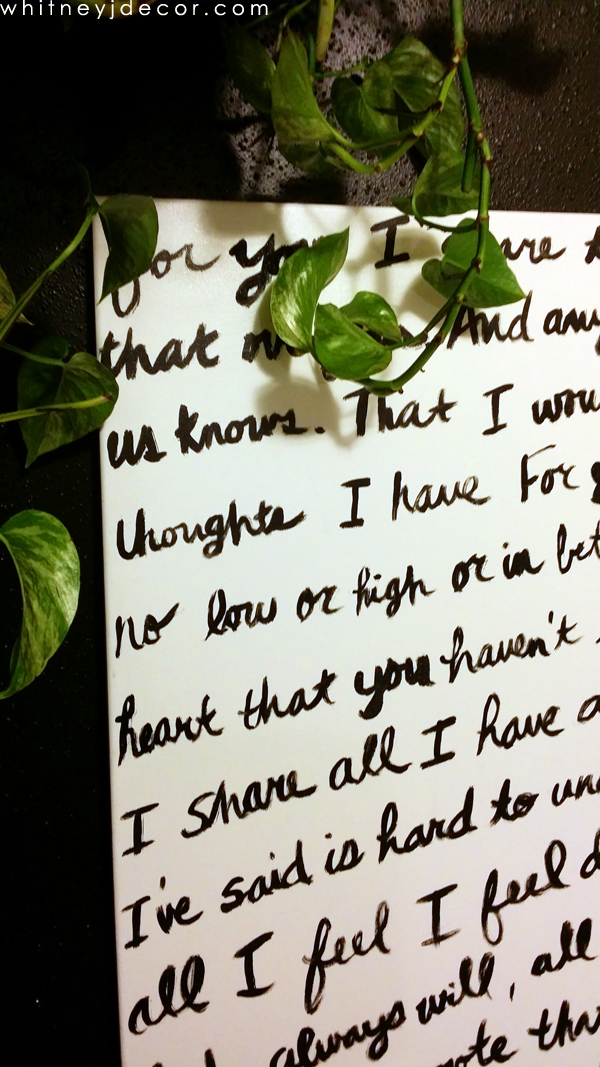 whitneyjdecor.com
for you I
that And
us knows. That I
thoughts I have For
no low or high or in
heart that you haven't
I share all I have
I've said is hard to
all I feel I feel
always will, all